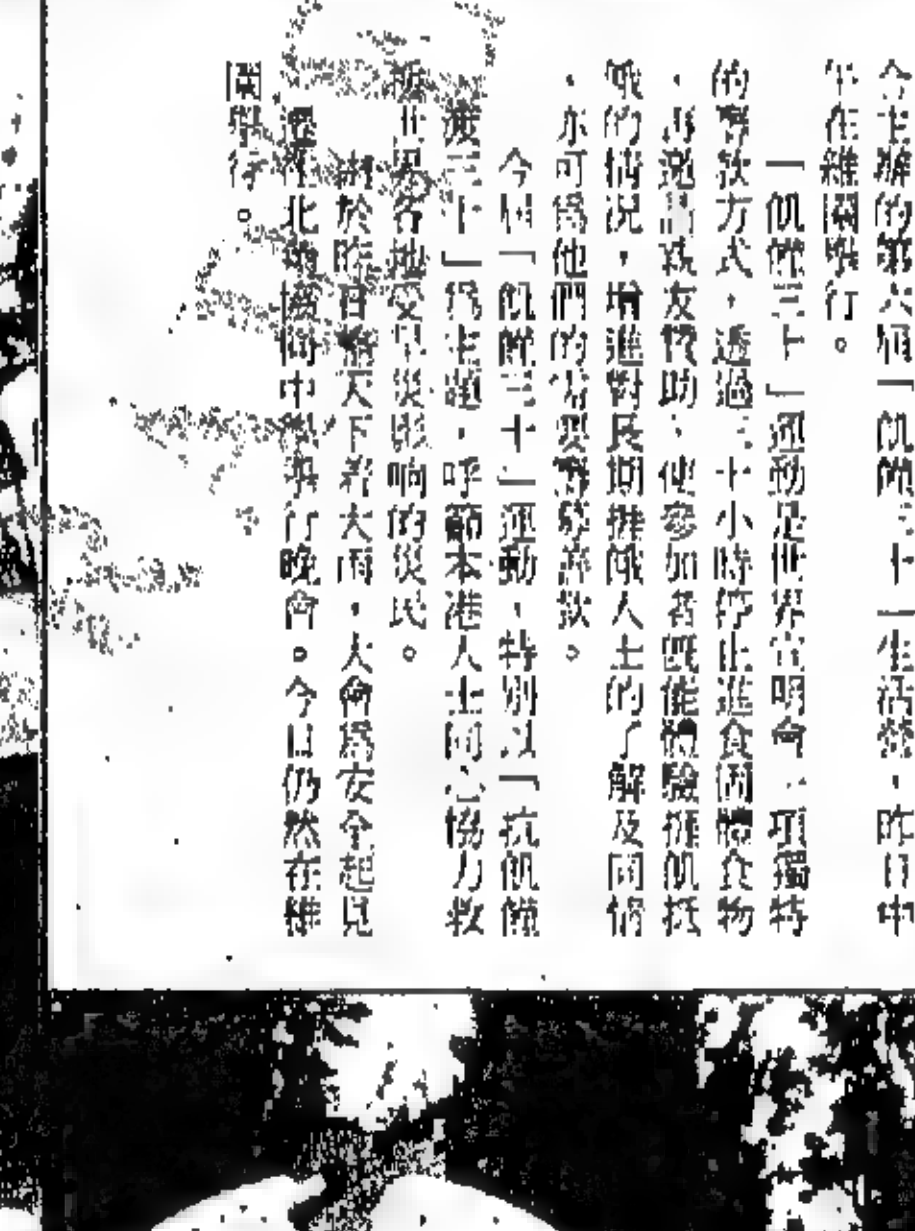 会主辦的第六屆「飢饉三十」生活營，昨日中
午在維園舉行。
「飢饉三十」運動是世界宣明會一項獨特
的籌欵方式，透過三十小時停止進食固體食物
，再邀請親友贊助，使參加者既能體驗捱飢抵
餓的情況，增進對長期捱餓人士的了解及同情
，亦可爲他們的需要籌募善欵。
今屆「飢饉三十」運動，特別以「抗飢饉
渡三十」爲主題，呼籲本港人士同心協力救
世界各地受旱災影响的災民。
由於昨日整天下着大雨，大會爲安全起見
，遷往北角協同中學舉行晚會。今日仍然在維
園舉行。